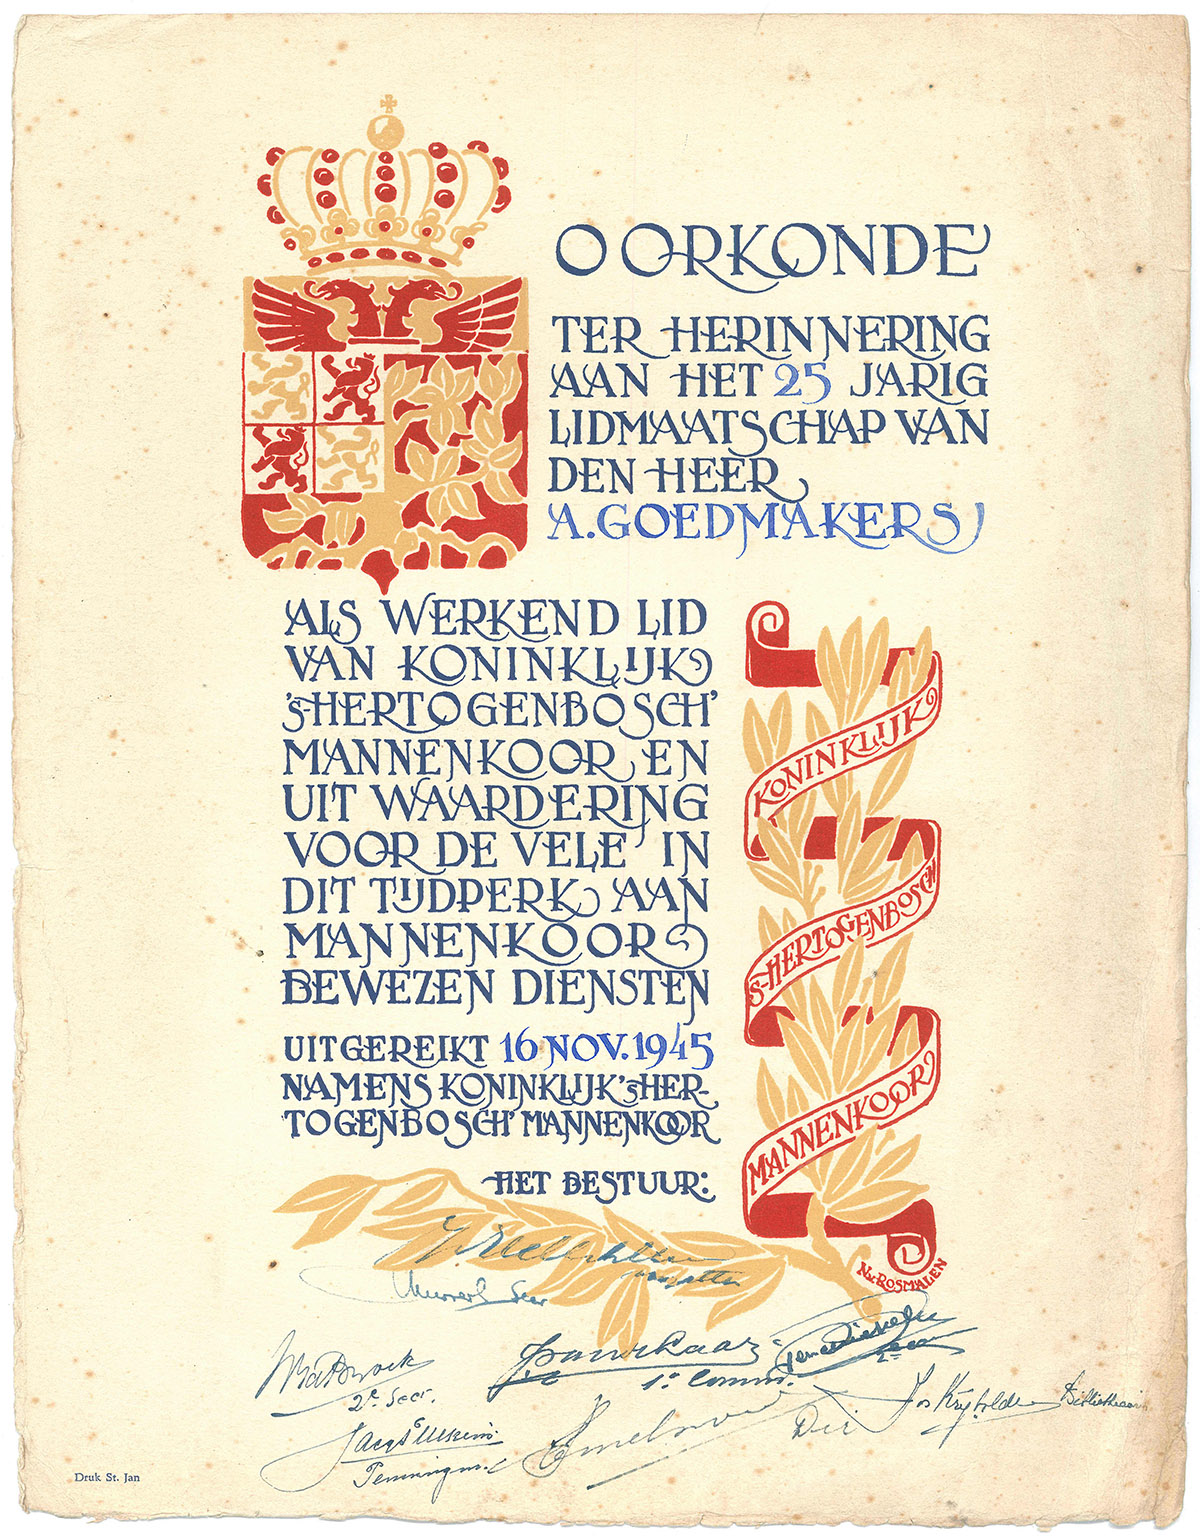 OORKONDE
TER HERINNERING
AAN HET 25 JARIG
LIDMAATSCHAP VAN
DEN HEER
A. GOEDMAKERS
ALS WERKEND LID
VAN KONINKLIJK
'S-HERTOGENBOSCH'
MANNENKOOR EN
UIT WAARDERING
VOOR DE VELE IN
DIT TIJDPERK AAN
MANNENKOOR
BEWEZEN DIENSTEN
UITGEREIKT 16 NOV. 1945
NAMENS KONINKLIJK 'S HER-
TOGENBOSCH' MANNENKOOR
HET BESTUUR:
KONINKLIJK
S-HERTOGENBOSCH
MANNENKOOR
N.V. ROSMALEN
voorzitter
Secr
2e Secr.
1e Comm.
2e
Dir
Bibliothecaris
Penningm.
Druk St. Jan